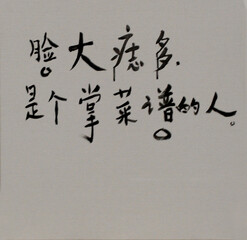 脸大痣多.
是个掌菜谱的人.